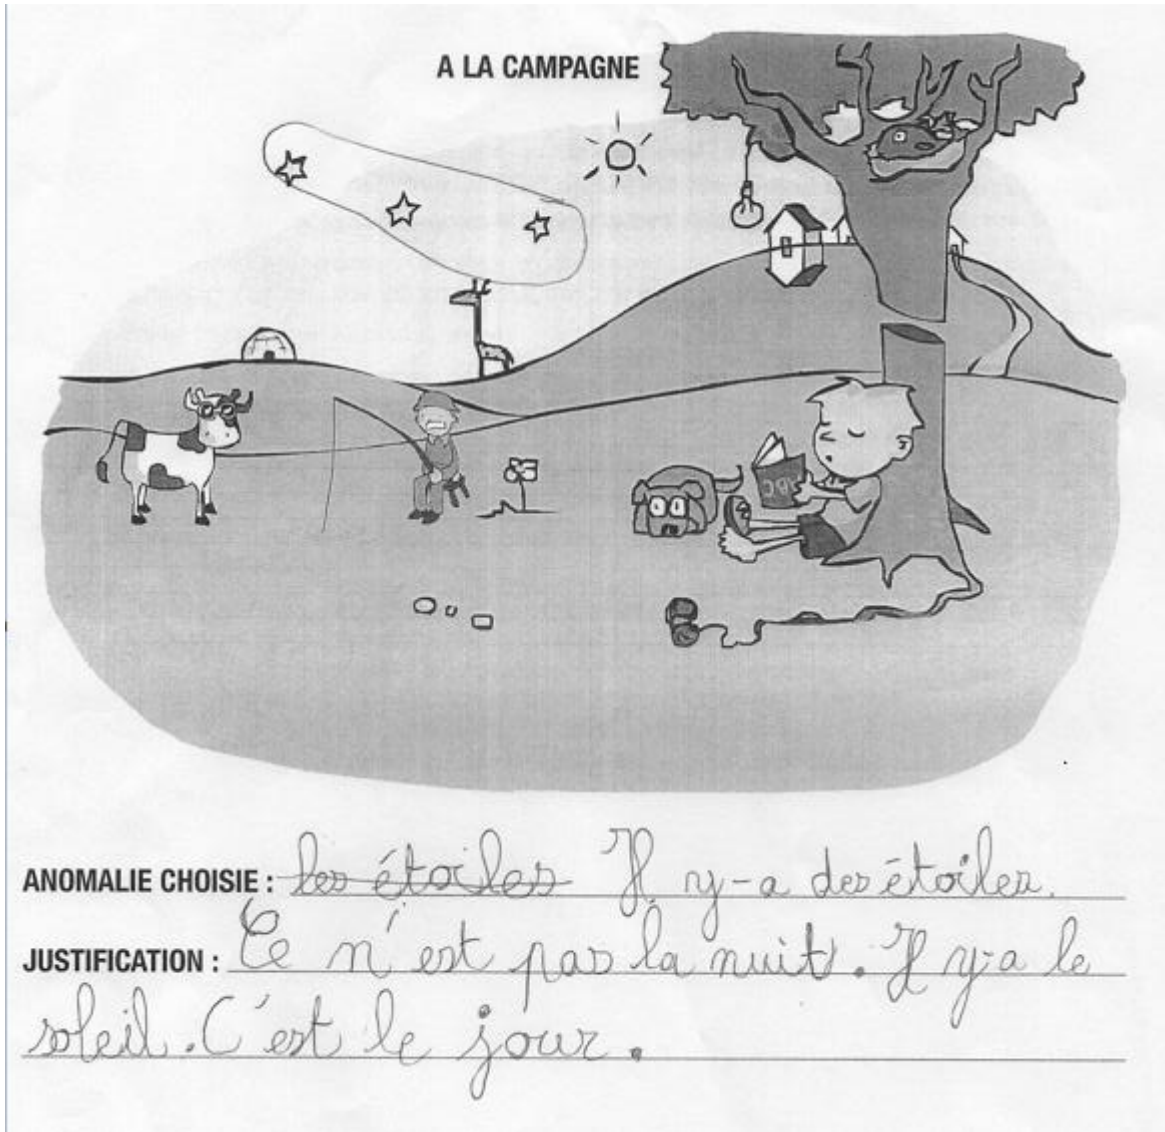 A LA CAMPAGNE
ABC
ANOMALIE CHOISIE : les étoiles Il y-a des étoiles.
JUSTIFICATION : Ce n'est pas la nuit. Il y-a le
soleil. C'est le jour.